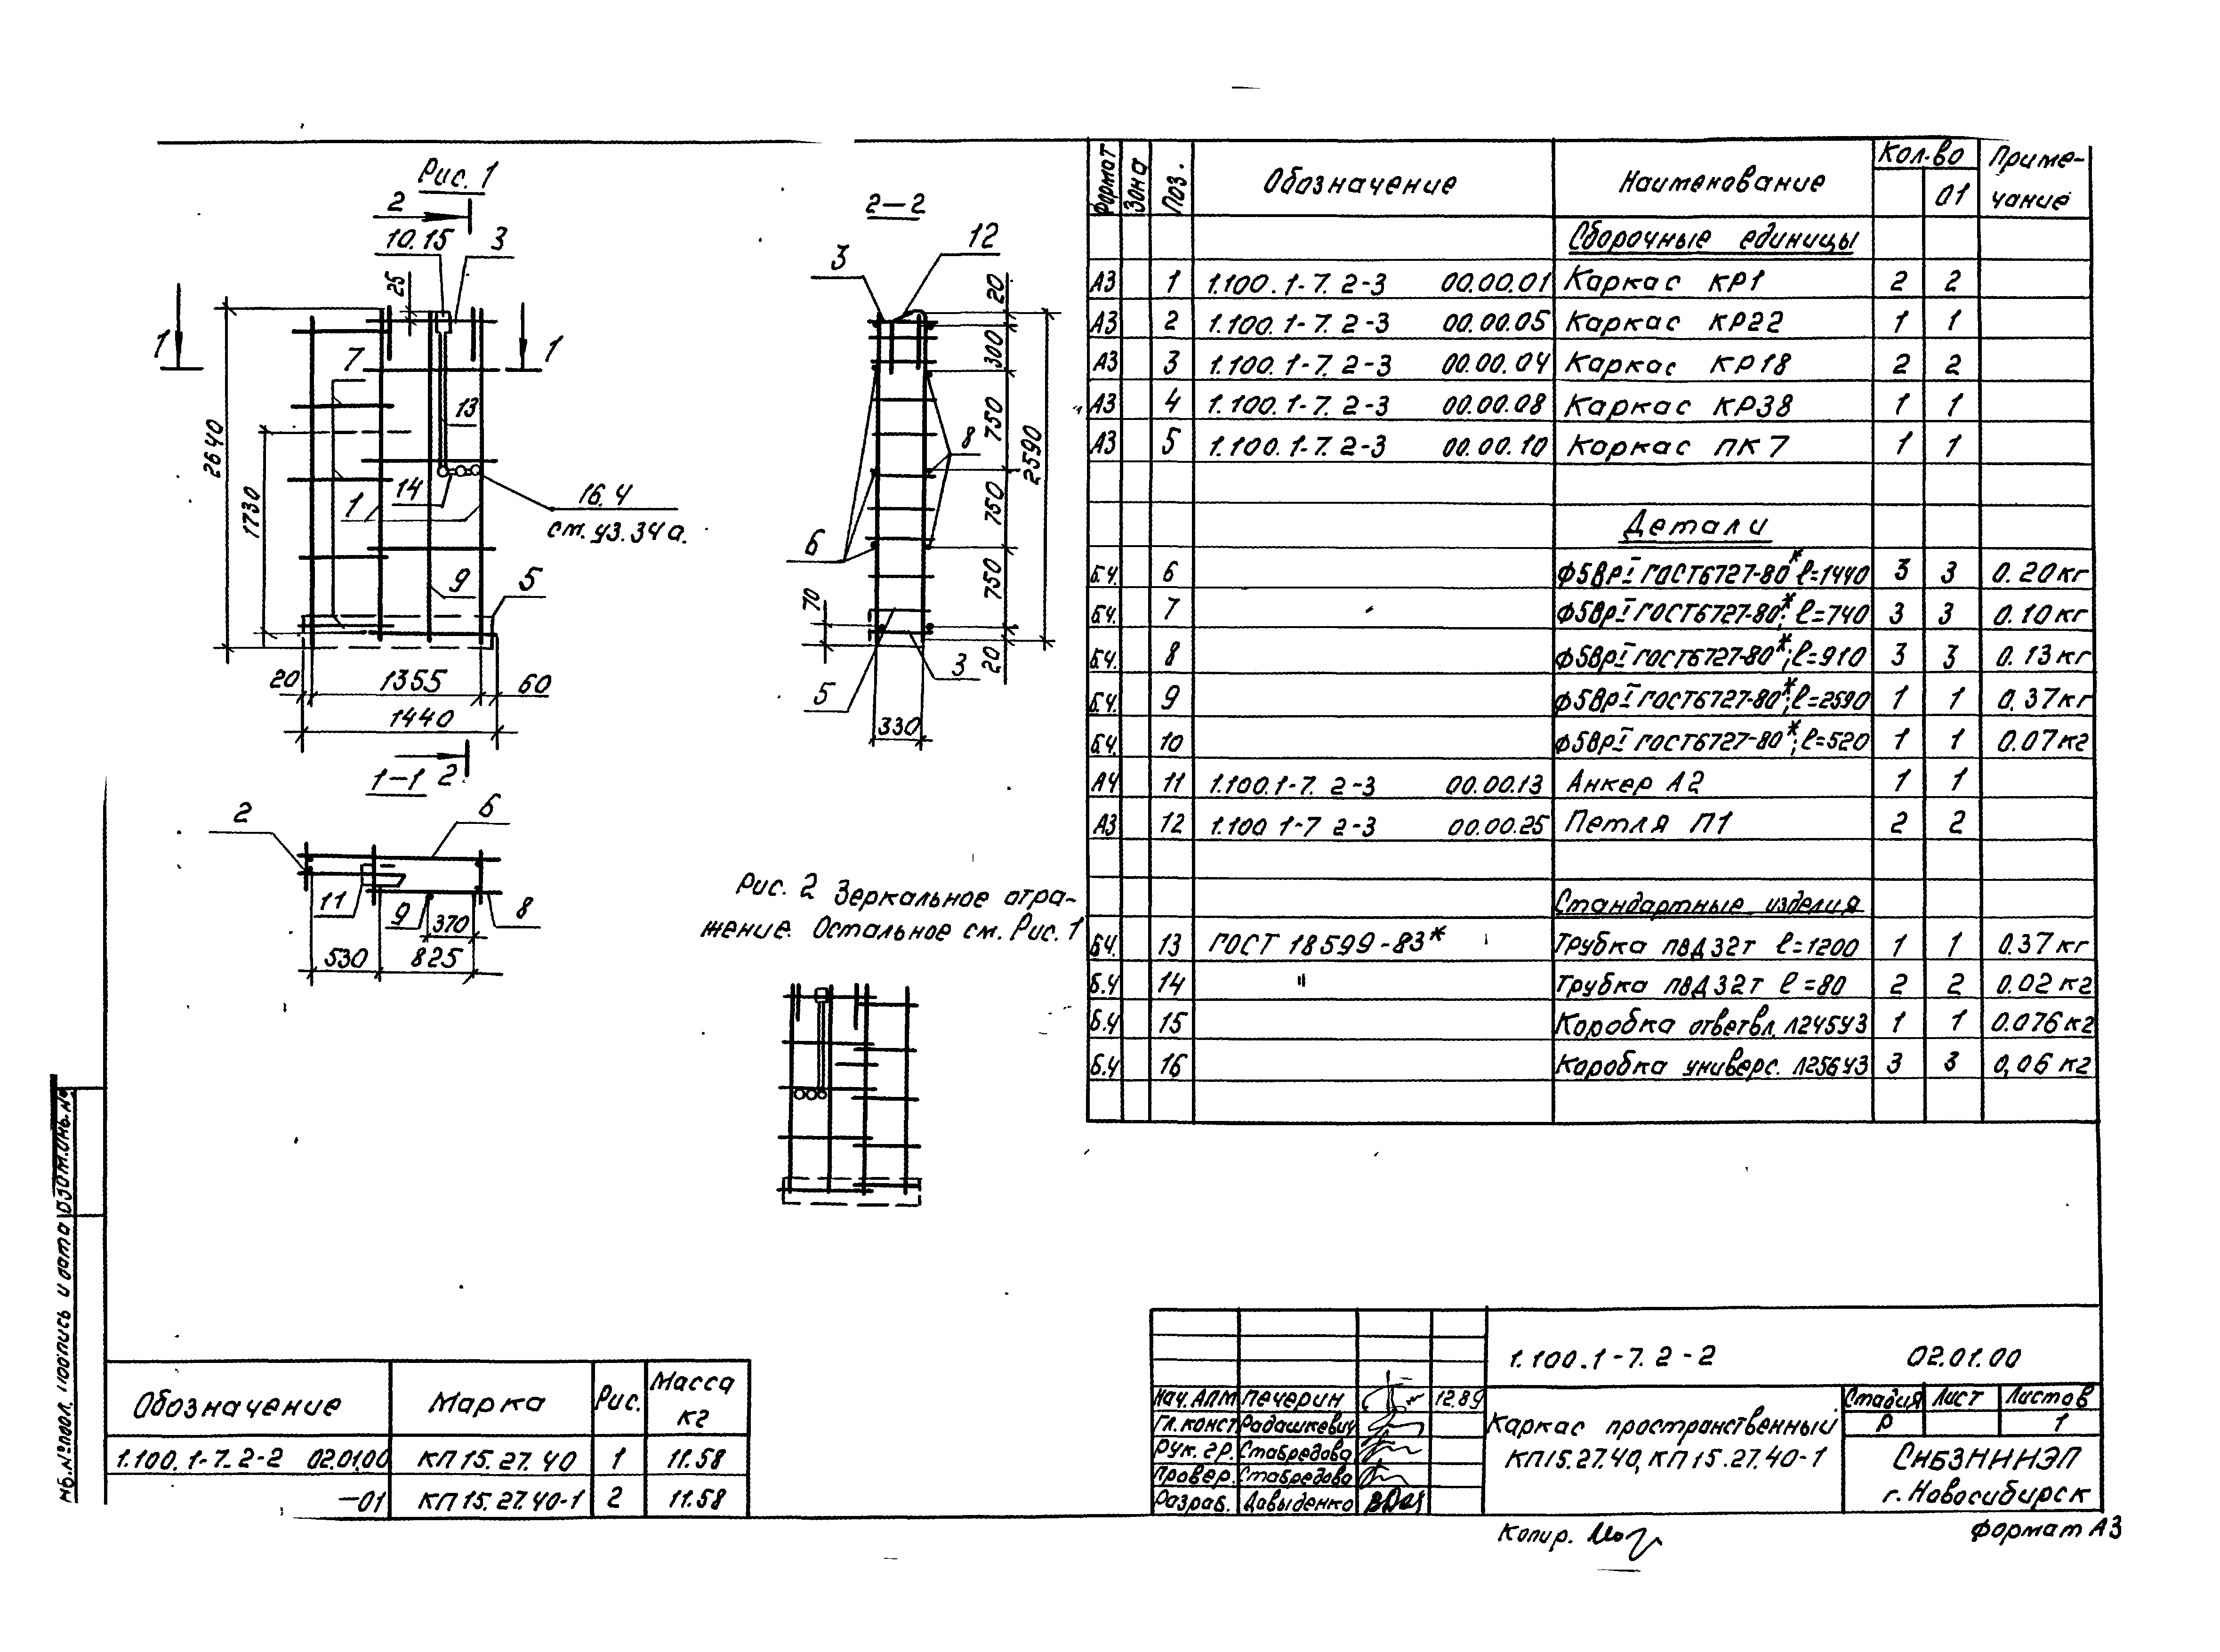 Рис. 1
2
10.15 3
25
1 1
7
13
2640
1730
14
1
16.4
см. уз. 34а.
9
5
20 1355 60
1440
2
1-1
2 6
11 9 370 8
530 825
2-2
3 12
20
300
750
8
2590
750
6
750
70
20
5 3
330
Рис. 2 Зеркальное отра-
жение. Остальное см. Рис. 1
Формат Зона Поз. Обозначение Наименование Кол-во Приме-
чание
01
Сборочные единицы
А3 1 1.100.1-7. 2-3 00.00.01 Каркас КР1 2 2
А3 2 1.100.1-7. 2-3 00.00.05 Каркас КР22 1 1
А3 3 1.100.1-7. 2-3 00.00.04 Каркас КР18 2 2
А3 4 1.100.1-7. 2-3 00.00.08 Каркас КР38 1 1
А3 5 1.100.1-7. 2-3 00.00.10 Каркас ПК7 1 1
Детали
Б.Ч. 6 Ф5ВрI ГОСТ6727-80* ℓ=1440 3 3 0.20кг
Б.Ч. 7 Ф5ВрI ГОСТ6727-80*; ℓ=740 3 3 0.10кг
Б.Ч. 8 Ф5ВрI ГОСТ6727-80*; ℓ=910 3 3 0.13кг
Б.Ч. 9 Ф5ВрI ГОСТ6727-80*; ℓ=2590 1 1 0.37кг
Б.Ч. 10 Ф5ВрI ГОСТ6727-80*; ℓ=520 1 1 0.07кг
А4 11 1.100.1-7. 2-3 00.00.13 Анкер А2 1 1
А3 12 1.100 1-7 2-3 00.00.25 Петля П1 2 2
Стандартные изделия
Б.Ч. 13 ГОСТ 18599-83* Трубка ПВД 32т ℓ=1200 1 1 0.37кг
Б.Ч 14 " Трубка ПВД 32т ℓ=80 2 2 0.02кг
Б.Ч 15 Коробка ответвл. Л245У3 1 1 0.076кг
Б.Ч 16 Коробка универс. Л256У3 3 3 0,06кг
Обозначение Марка Рис. Масса
кг
1.100.1-7.2-2 02.01.00 КП 15.27.40 1 11.58
-01 КП 15.27.40-1 2 11.58
1.100.1-7.2-2 02.01.00
Нач. АПМ Печерин 12.89
Гл. конст Радашкевич
Рук. гр. Стабредова
Провер. Стабредова
Разраб. Давыденко
Каркас пространственный
КП15.27.40, КП 15.27.40-1
Стадия Лист Листов
Р 1
СИБЗНИИЭП
г. Новосибирск
Копир.
Формат А3
нв.№ подл. Подпись и дата Взам.Инв.№